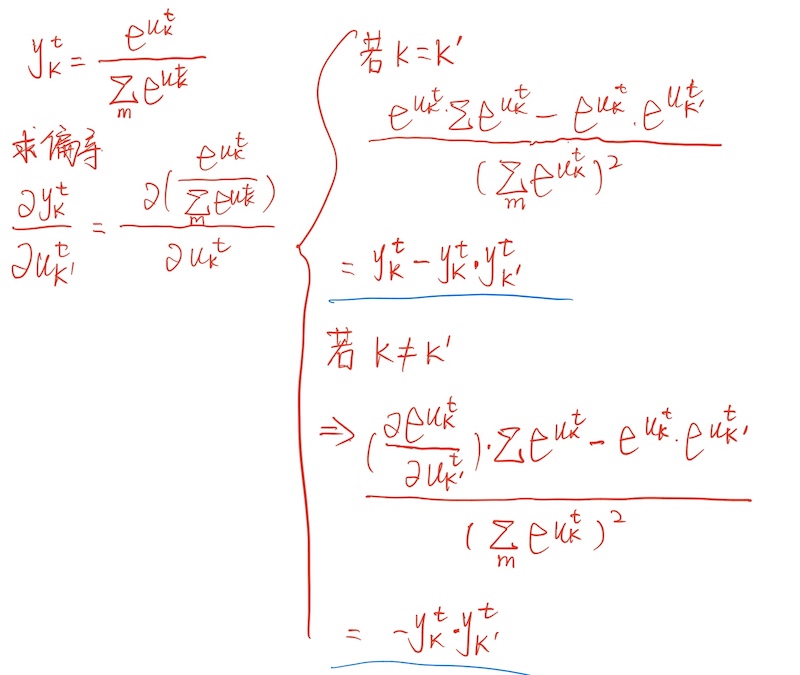 y_k^t = e^{u_k^t} / Σ_m e^{u_k^t}
求偏导
∂y_k^t / ∂u_{k'}^t = ∂(e^{u_k^t} / Σ_m e^{u_k^t}) / ∂u_k^t
若 k = k'
(e^{u_k^t} · Σ e^{u_k^t} − e^{u_k^t} · e^{u_{k'}^t}) / (Σ_m e^{u_k^t})^2
= y_k^t − y_k^t · y_{k'}^t
若 k ≠ k'
⇒ ((∂e^{u_k^t} / ∂u_{k'}^t) · Σ e^{u_k^t} − e^{u_k^t} · e^{u_{k'}^t}) / (Σ_m e^{u_k^t})^2
= −y_k^t · y_{k'}^t